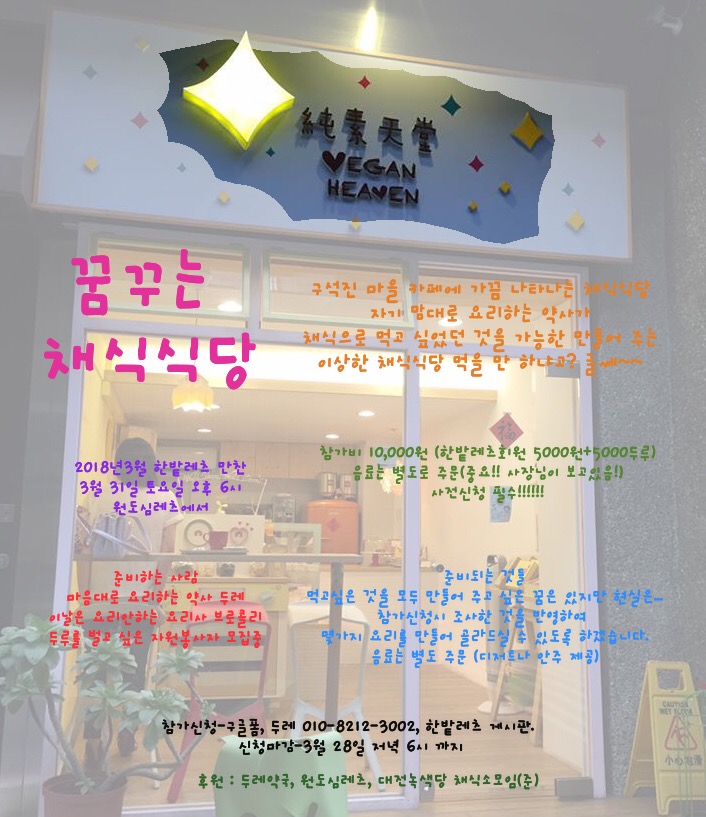 純素天堂
VEGAN
HEAVEN
꿈꾸는
채식식당
구석진 마을 카페에 가끔 나타나는 채식식당
자기 맘대로 요리하는 약사가
채식으로 먹고 싶었던 것을 가능한 만들어 주는
이상한 채식식당 먹을 만 하냐고? 글쎄~~
2018년3월 한밭레츠 만찬
3월 31일 토요일 오후 6시
원도심레츠에서
참가비 10,000원 (한밭레츠회원 5000원+5000두루)
음료는 별도로 주문(중요!! 사장님이 보고있음!)
사전신청 필수!!!!!!
준비하는 사람
마음대로 요리하는 약사 두레
이날은 요리안하는 요리사 브로콜리
두루를 벌고 싶은 자원봉사자 모집중
준비되는 것들
먹고싶은 것을 모두 만들어 주고 싶은 꿈은 있지만 현실은...
참가신청시 조사한 것을 반영하여
몇가지 요리를 만들어 골라드실 수 있도록 하겠습니다.
음료는 별도 주문 (디저트나 안주 제공)
참가신청-구글폼, 두레 010-8212-3002, 한밭레츠 게시판.
신청마감-3월 28일 저녁 6시 까지
후원 : 두레약국, 원도심레츠, 대전녹색당 채식소모임(준)
福
CAUTION
WET FLOOR
小心地滑